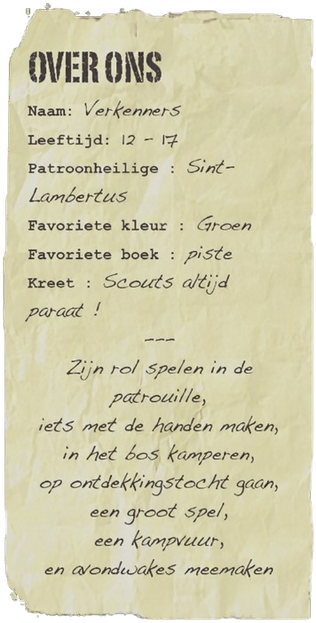 OVER ONS
Naam: Verkenners
Leeftijd: 12 - 17
Patroonheilige : Sint-
Lambertus
Favoriete kleur : Groen
Favoriete boek : piste
Kreet : Scouts altijd
paraat !
---
Zijn rol spelen in de
patrouille,
iets met de handen maken,
in het bos kamperen,
op ontdekkingstocht gaan,
een groot spel,
een kampvuur,
en avondwakes meemaken